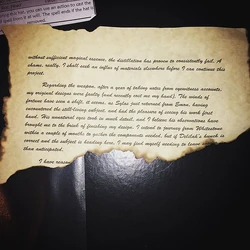 hat, you can use an action to cast the
spell from it at will. The spell ends if the hat is
without sufficient magical reserve, the distillation has proven to consistently fail. A
shame, really. I shall seek an influx of materials elsewhere before I can continue this
project.
Regarding the weapon, after a year of taking notes from eyewitness accounts,
my original designs were faulty (and recently cost me my hand). The winds of
fortune have seen a shift, it seems, as Sylas just returned from Emon, having
encountered the still-living subject, and had the pleasure of seeing his work first
hand. His unnatural eyes took in much detail, and I believe his observations have
brought me to the brink of finishing my design. I intend to journey from Whitestone
within a couple of months to gather the components needed, but if Delilah's hunch is
correct and the subject is heading here, I may find myself needing to leave
than anticipated.
I have reason